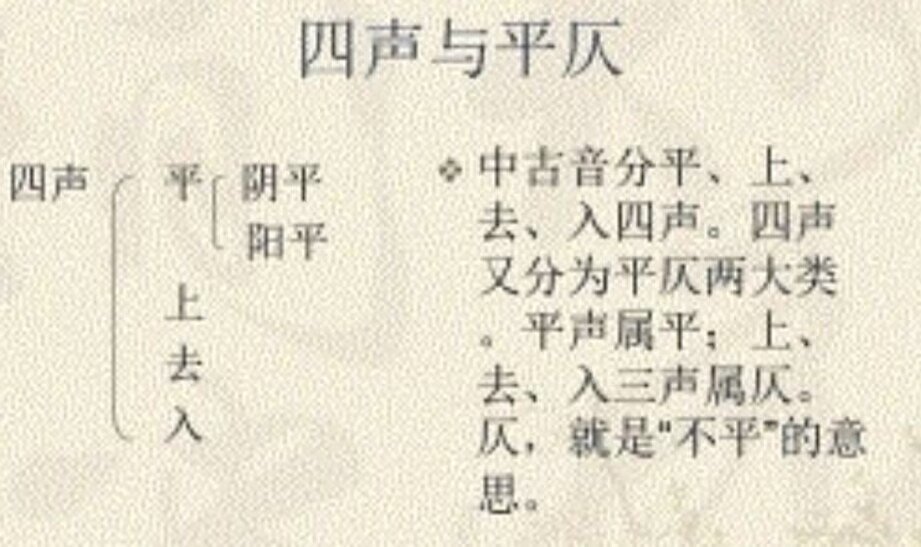 四声与平仄
四声 平 阴平
阳平
上
去
入
中古音分平、上、
去、入四声。四声
又分为平仄两大类
。平声属平；上、
去、入三声属仄。
仄，就是“不平”的意
思。